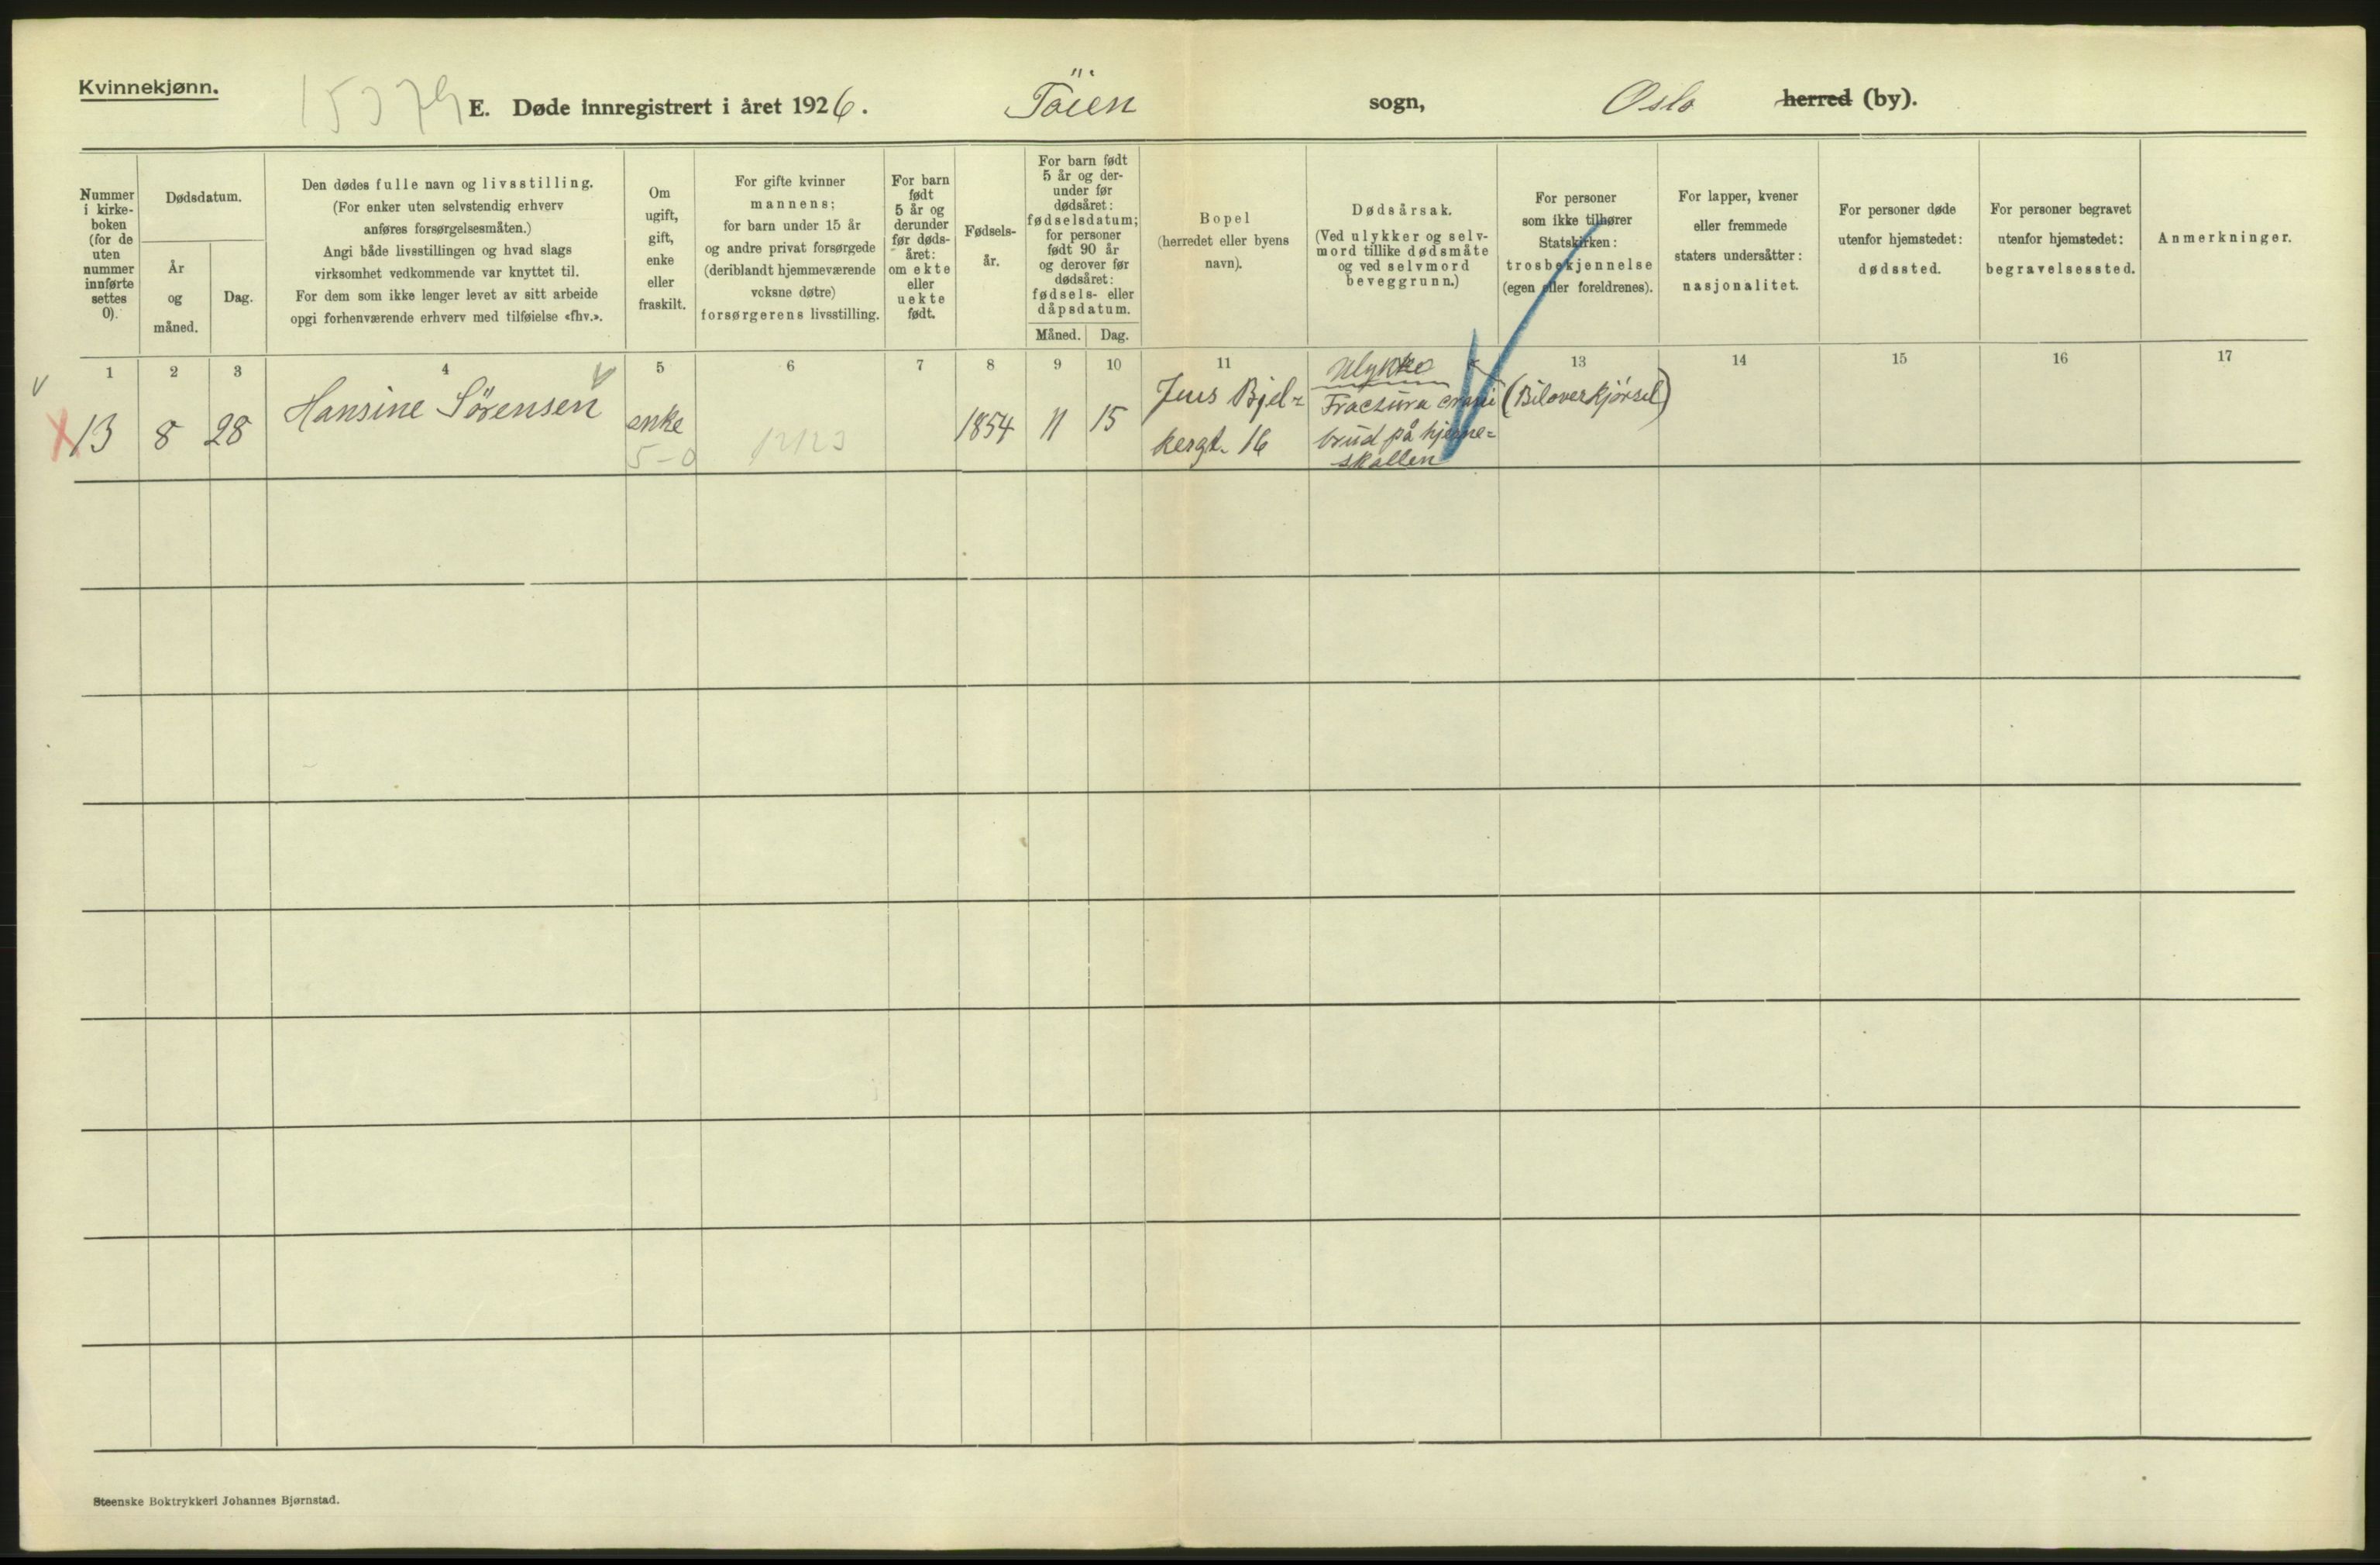 Kvinnekjønn.
15379
E. Døde innregistrert i året 1926. Töien sogn, Oslo herred (by).
Nummer
i kirke-
boken
(for de
uten
nummer
innførte
settes
0).
Dødsdatum.
År
og
måned.
Dag.
Den dødes fulle navn og livsstilling.
(For enker uten selvstendig erhverv
anføres forsørgelsesmåten.)
Angi både livsstillingen og hvad slags
virksomhet vedkommende var knyttet til.
For dem som ikke lenger levet av sitt arbeide
opgi forhenværende erhverv med tilføielse «fhv.».
Om
ugift,
gift,
enke
eller
fraskilt.
For gifte kvinner
mannens;
for barn under 15 år
og andre privat forsørgede
(deriblandt hjemmeværende
voksne døtre)
forsørgerens livsstilling.
For barn
født
5 år og
derunder
før døds-
året:
om ekte
eller
uekte
født.
Fødsels-
år.
For barn født
5 år og der-
under før
dødsåret:
fødselsdatum;
for personer
født 90 år
og derover før
dødsåret:
fødsels- eller
dåpsdatum.
Måned. Dag.
Bopel
(herredet eller byens
navn).
Dødsårsak.
(Ved ulykker og selv-
mord tillike dødsmåte
og ved selvmord
beveggrunn.)
For personer
som ikke tilhører
Statskirken:
trosbekjennelse
(egen eller foreldrenes).
For lapper, kvener
eller fremmede
staters undersåtter:
nasjonalitet.
For personer døde
utenfor hjemstedet:
dødssted.
For personer begravet
utenfor hjemstedet:
begravelsessted.
Anmerkninger.
1 2 3 4 5 6 7 8 9 10 11 12 13 14 15 16 17
13 8 28 Hansine Sörensen enke
5-0
1854 11 15
Jens Bjel=
kesgt. 16
Ulykke
Fractura crani (Biloverkjörsel)
brud på hjerne=
skallen
Steenske Boktrykkeri Johannes Bjørnstad.